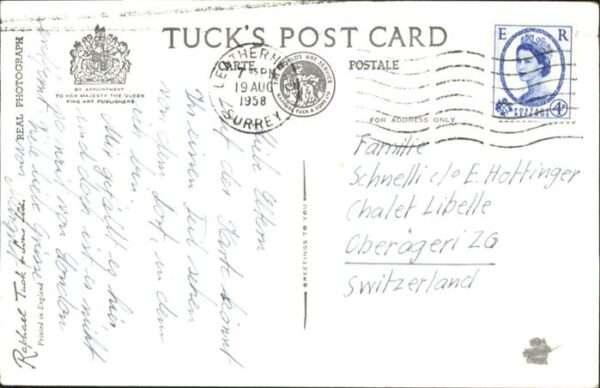 TUCK'S POST CARD
CARTE POSTALE
BY APPOINTMENT
TO HER MAJESTY THE QUEEN
FINE ART PUBLISHERS
REAL PHOTOGRAPH
Raphael Tuck & Sons Ltd.
Printed in England
GREETINGS TO YOU
FOR ADDRESS ONLY
LEATHERHEAD
7 PM
19 AUG
1958
SURREY
E R
POSTAGE
4D
Liebe Eltern
Auf der Karte könnt
Ihr einen Teil sehen
von dem Dorf, in dem
ich bin
gefällt es hier
und doch ist es nicht
weit von London
entfernt
viele Grüsse
Familie
Schnelli c/o E. Hottinger
Chalet Libelle
Oberägeri ZG
Switzerland